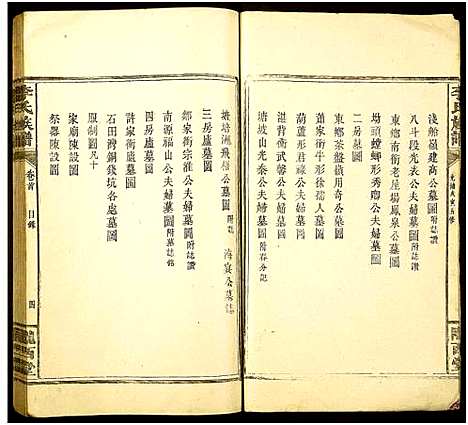 李氏族譜
光緒
隴西堂
淺船嶺建高公墓圖附誌
八斗段光表公夫婦墓圖附誌讚
東鄉南衖老屋場鳳泉公墓圖
坳頭螳螂形秀卿公夫婦墓圖
東鄉茶盤儀用奇公墓圖
董家衖牛形徐孺人墓圖
葫蘆形君棟公夫婦墓圖
湛背衛武馨公夫婦墓圖
塘坡山光泰公夫婦墓圖附春分記
塘培湖飛梧公墓圖附誌 海宴公墓誌
三房廬墓圖
鄒家衖宗淮公夫婦墓圖附誌讚
南源福山公夫婦墓圖附墓誌銘
許家衖廬墓圖
石田灣銅錢坑各處墓圖
服制圖凡十
家廟陳設圖
祭器陳設圖
李氏族譜
卷首 目錄 四
隴西堂